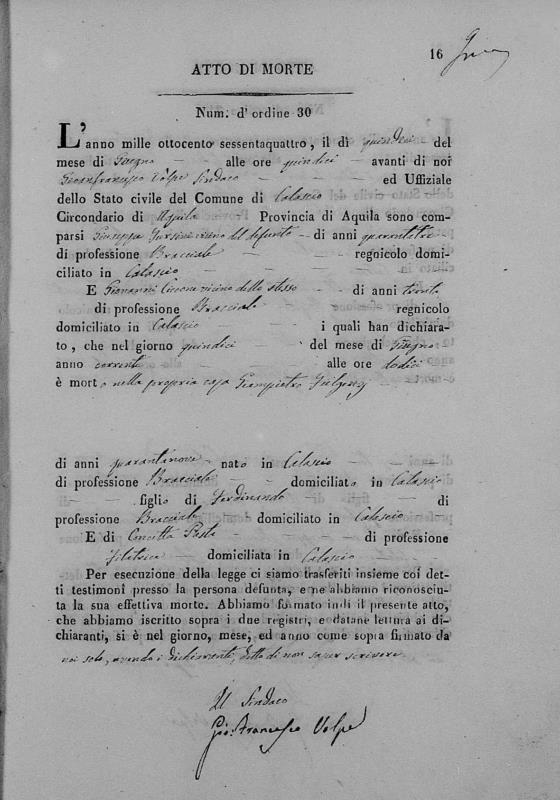 16
ATTO DI MORTE
Num. d' ordine 30
L'anno mille ottocento sessentaquattro, il dì quindici del
mese di Giugno alle ore quindici avanti di noi
Gianfrancesco Volpe Sindaco ed Uffiziale
dello Stato civile del Comune di Calascio
Circondario di Aquila Provincia di Aquila sono com-
parsi Giuseppe vicino del defunto di anni quarantatre
di professione Bracciale regnicolo domi-
ciliato in Calascio
E Giovanni Ciccone vicino dello stesso di anni trenta
di professione Bracciale regnicolo
domiciliato in Calascio i quali han dichiara-
to, che nel giorno quindici del mese di Giugno
anno corrente alle ore dodici
è morto nella propria casa Giampietro Fulgenzj
di anni quarantanove nato in Calascio
di professione Bracciale domiciliato in Calascio
figlio di Ferdinando di
professione Bracciale domiciliato in Calascio
E di Concetta di professione
Filatrice domiciliata in Calascio
Per esecuzione della legge ci siamo trasferiti insieme coi det-
ti testimoni presso la persona defunta, e ne abbiamo riconosciu-
ta la sua effettiva morte. Abbiamo formato indi il presente atto,
che abbiamo iscritto sopra i due registri, e datane lettura ai di-
chiaranti, si è nel giorno, mese, ed anno come sopra firmato da
noi solo, avendo i dichiaranti, detto di non saper scrivere.
Il Sindaco
Gio: Francesco Volpe